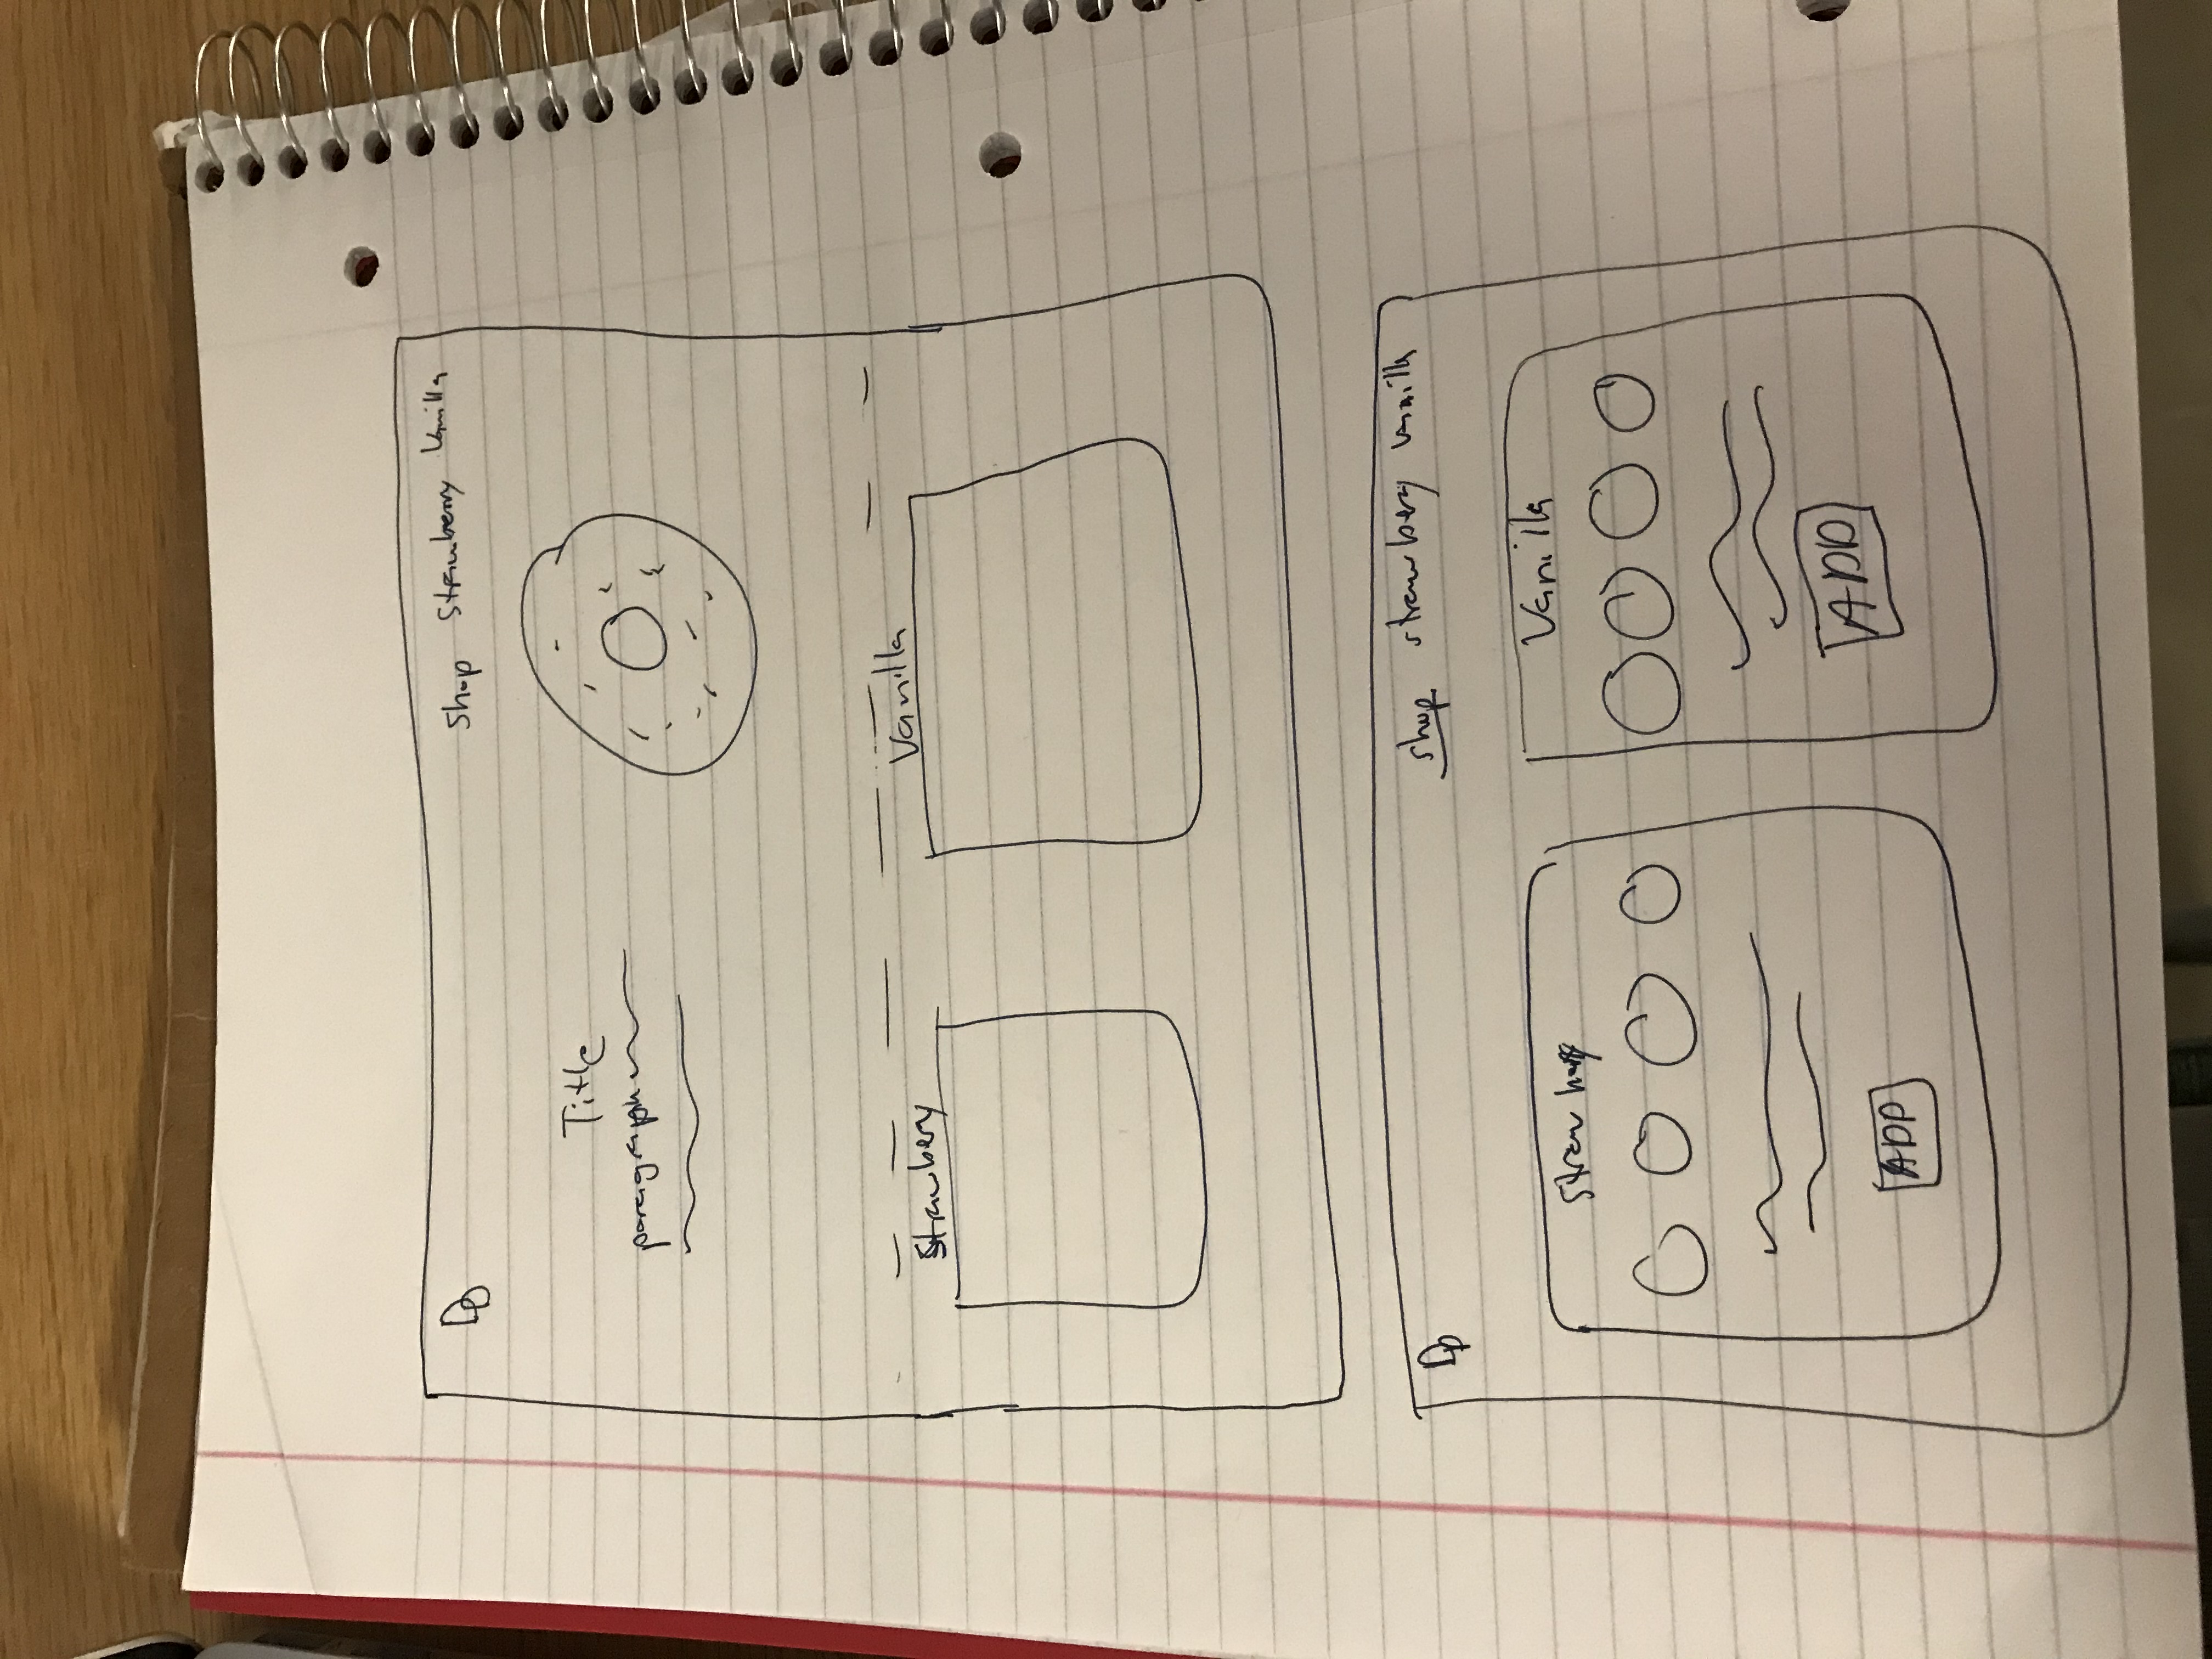 DD
Shop Strawberry Vanilla
Title
paragraph
Strawbery
Vanilla
DD
shop strawbery vanilla
Vanilla
ADD
ADD